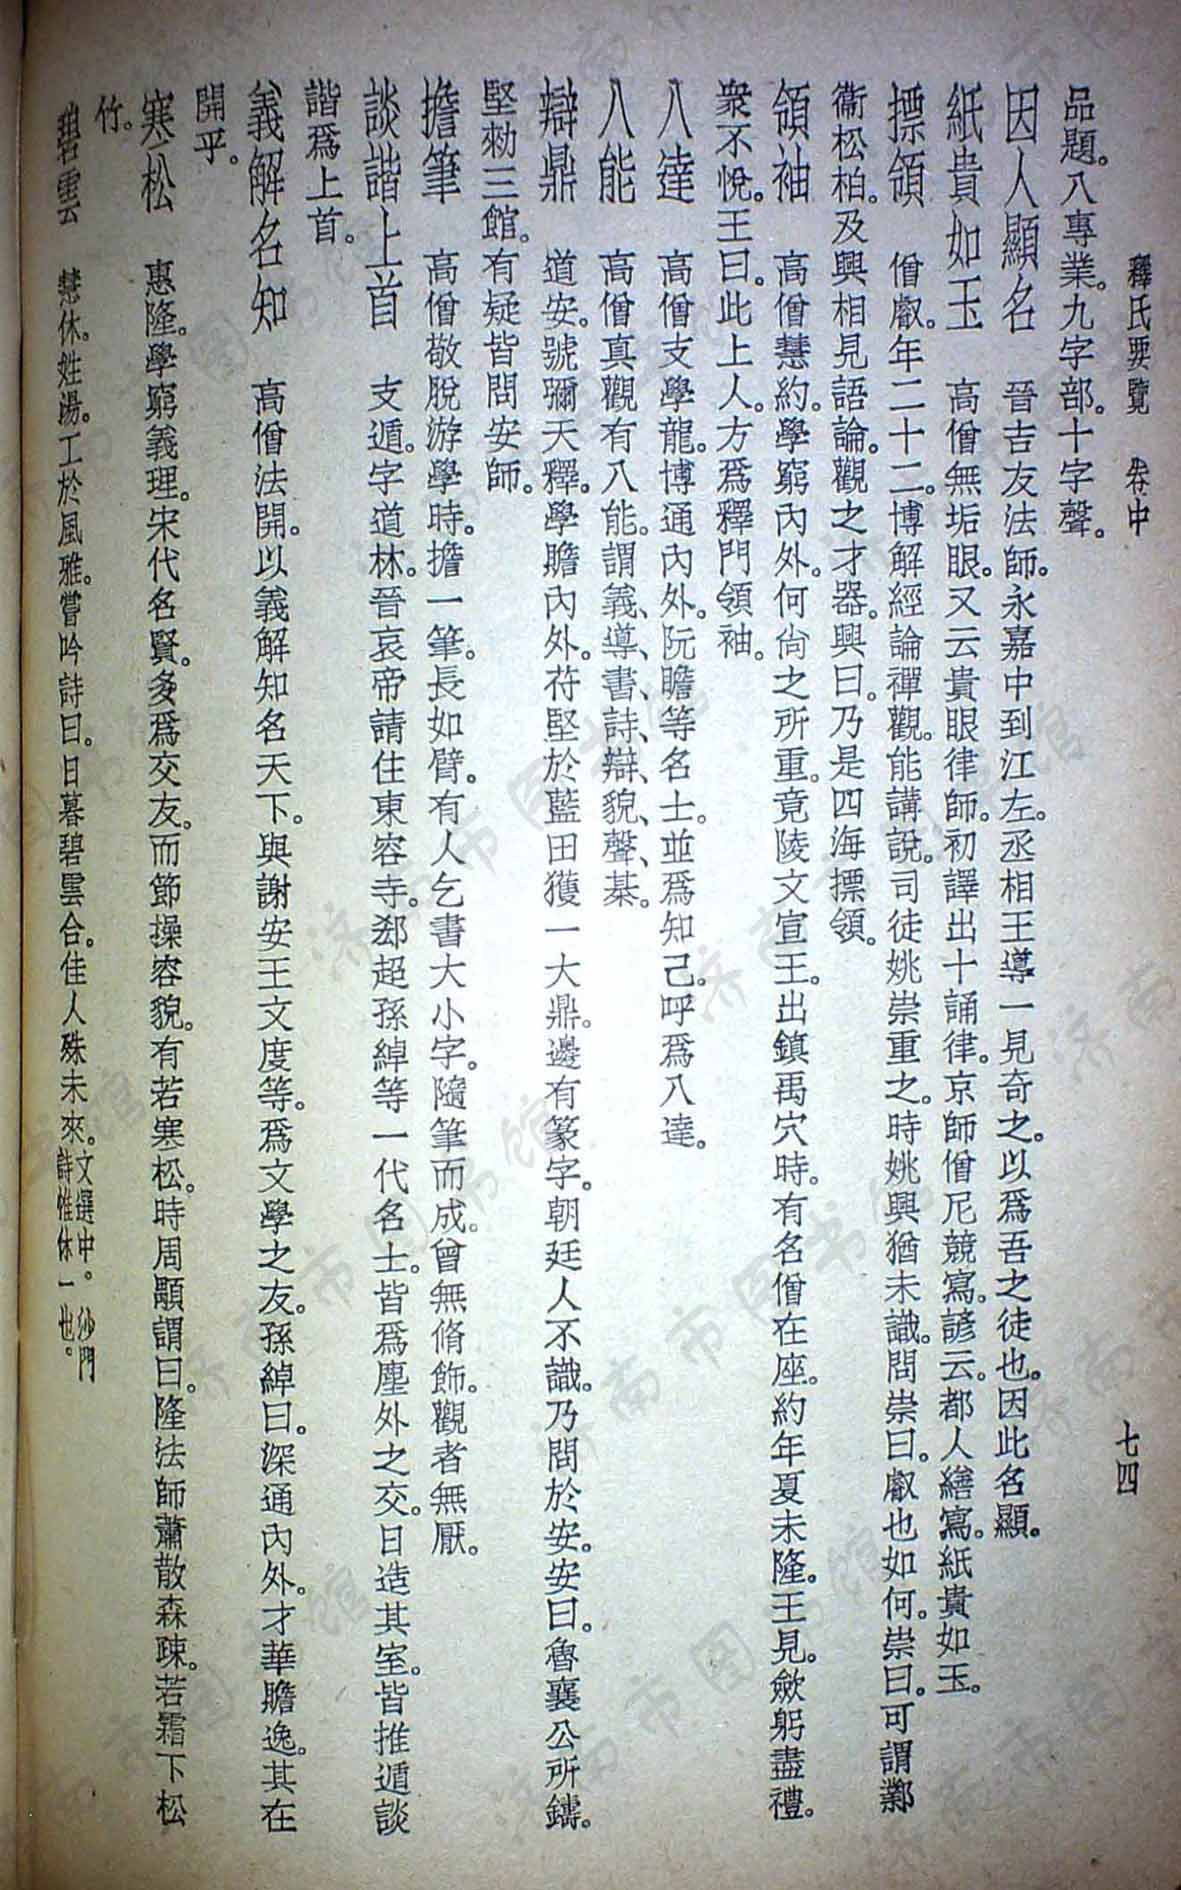 釋氏要覽　卷中　七四
品題。八專業。九字部。十字聲。
因人顯名　晉吉友法師。永嘉中到江左。丞相王導一見奇之。以爲吾之徒也。因此名顯。
紙貴如玉　高僧無垢眼。又云貴眼律師。初譯出十誦律。京師僧尼競寫。諺云。都人繕寫。紙貴如玉。
摽領　僧叡。年二十二。博解經論禪觀。能講說。司徒姚崇重之。時姚興猶未識。問崇曰。叡也如何。崇曰。可謂鄴
衞松柏。及興相見語論。觀之才器。興曰。乃是四海摽領。
領袖　高僧慧約。學窮內外。何尙之所重。竟陵文宣王。出鎮禹穴時。有名僧在座。約年夏未隆。王見。歛躬盡禮。
衆不悅。王曰。此上人。方爲釋門領袖。
八達　高僧支學龍。博通內外。阮瞻等名士。並爲知己。呼爲八達。
八能　高僧真觀有八能。謂義、導、書、詩、辯、貌、聲、棊。
辯鼎　道安。號彌天釋。學贍內外。苻堅於藍田獲一大鼎。邊有篆字。朝廷人不識。乃問於安。安曰。魯襄公所鑄。
堅勑三館。有疑皆問安師。
擔筆　高僧敬脫游學時。擔一筆。長如臂。有人乞書大小字。隨筆而成。曾無脩飾。觀者無厭。
談諧上首　支遁。字道林。晉哀帝請住東容寺。郄超孫綽等一代名士。皆爲塵外之交。日造其室。皆推遁談
諧爲上首。
義解名知　高僧法開。以義解知名天下。與謝安王文度等。爲文學之友。孫綽曰。深通內外。才華贍逸。其在
開乎。
寒松　惠隆。學窮義理。宋代名賢。多爲交友。而節操容貌。有若寒松。時周顒謂曰。隆法師蕭散森踈。若霜下松
竹。
碧雲　慧休。姓湯。工於風雅。嘗吟詩曰。日暮碧雲合。佳人殊未來。文選中。沙門詩惟休一也。